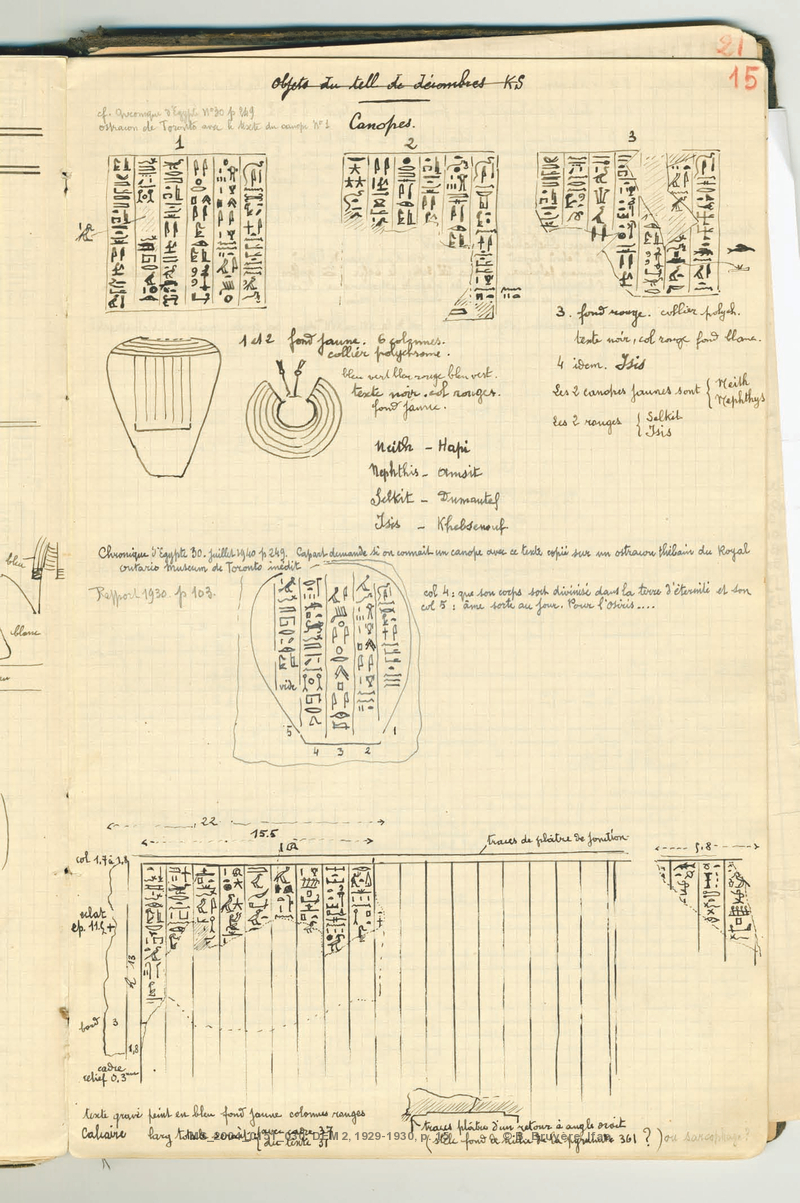 21
15
Objets du tell de décombres KS
cf. Chronique d'Egypte N°30 p 249
ostracon de Toronto avec le texte du canope N°1
Canopes.
1
2
3
1 et 2 fond jaune. 6 colonnes.
collier polychrome.
bleu vert blanc rouge bleu vert.
texte noir. col rouges.
fond jaune.
3. fond rouge. collier polych.
texte noir, col rouge fond blanc.
4 idem. Isis
Les 2 canopes jaunes sont { Neith
Nephthys
Les 2 rouges { Selkit
Isis
Neith - Hapi
Nephthis - Amsit
Selkit - Dumautef
Isis - Khebsenouf
Chronique d'Egypte 30. juillet 1940 p 249. Capart demande si on connait un canope avec ce texte copié sur un ostracon thébain du Royal
Ontario Museum de Toronto inédit
Rapport 1930. p 103.
col 4: que son corps soit divinisé dans la terre d'éternité et son
col 5: âme sorte au jour. Pour l'Osiris....
vide
5
4 3 2
1
bleu
blanc
22
15.5
traces de plâtre de jonction
5.8
col 1.7 à 1.9
eclat
ep. 11.5
bord 3
1,8
cadre
relief 0.3
texte gravé peint en bleu fond jaune colonnes rouges
Calcaire larg totale avec cadre 37
texte 31
traces plâtre d'un retour à angle droit
(stèle fond de niche de la pyramide 361 ? ) ou sarcophage?
DEM 2, 1929-1930, p. 15 © B. Bruyère / Ifao